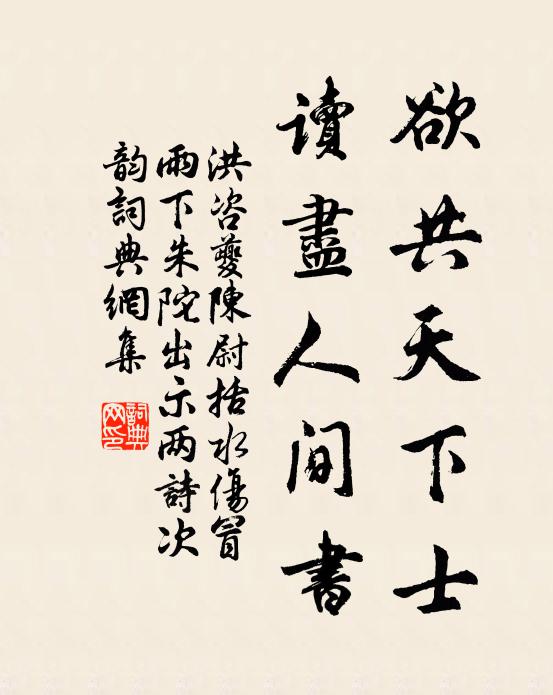 欲共天下士
讀盡人間書
洪咨夔陳尉括水傷冒
雨下朱陀出示两詩次
韵詞典網集
詞典网印